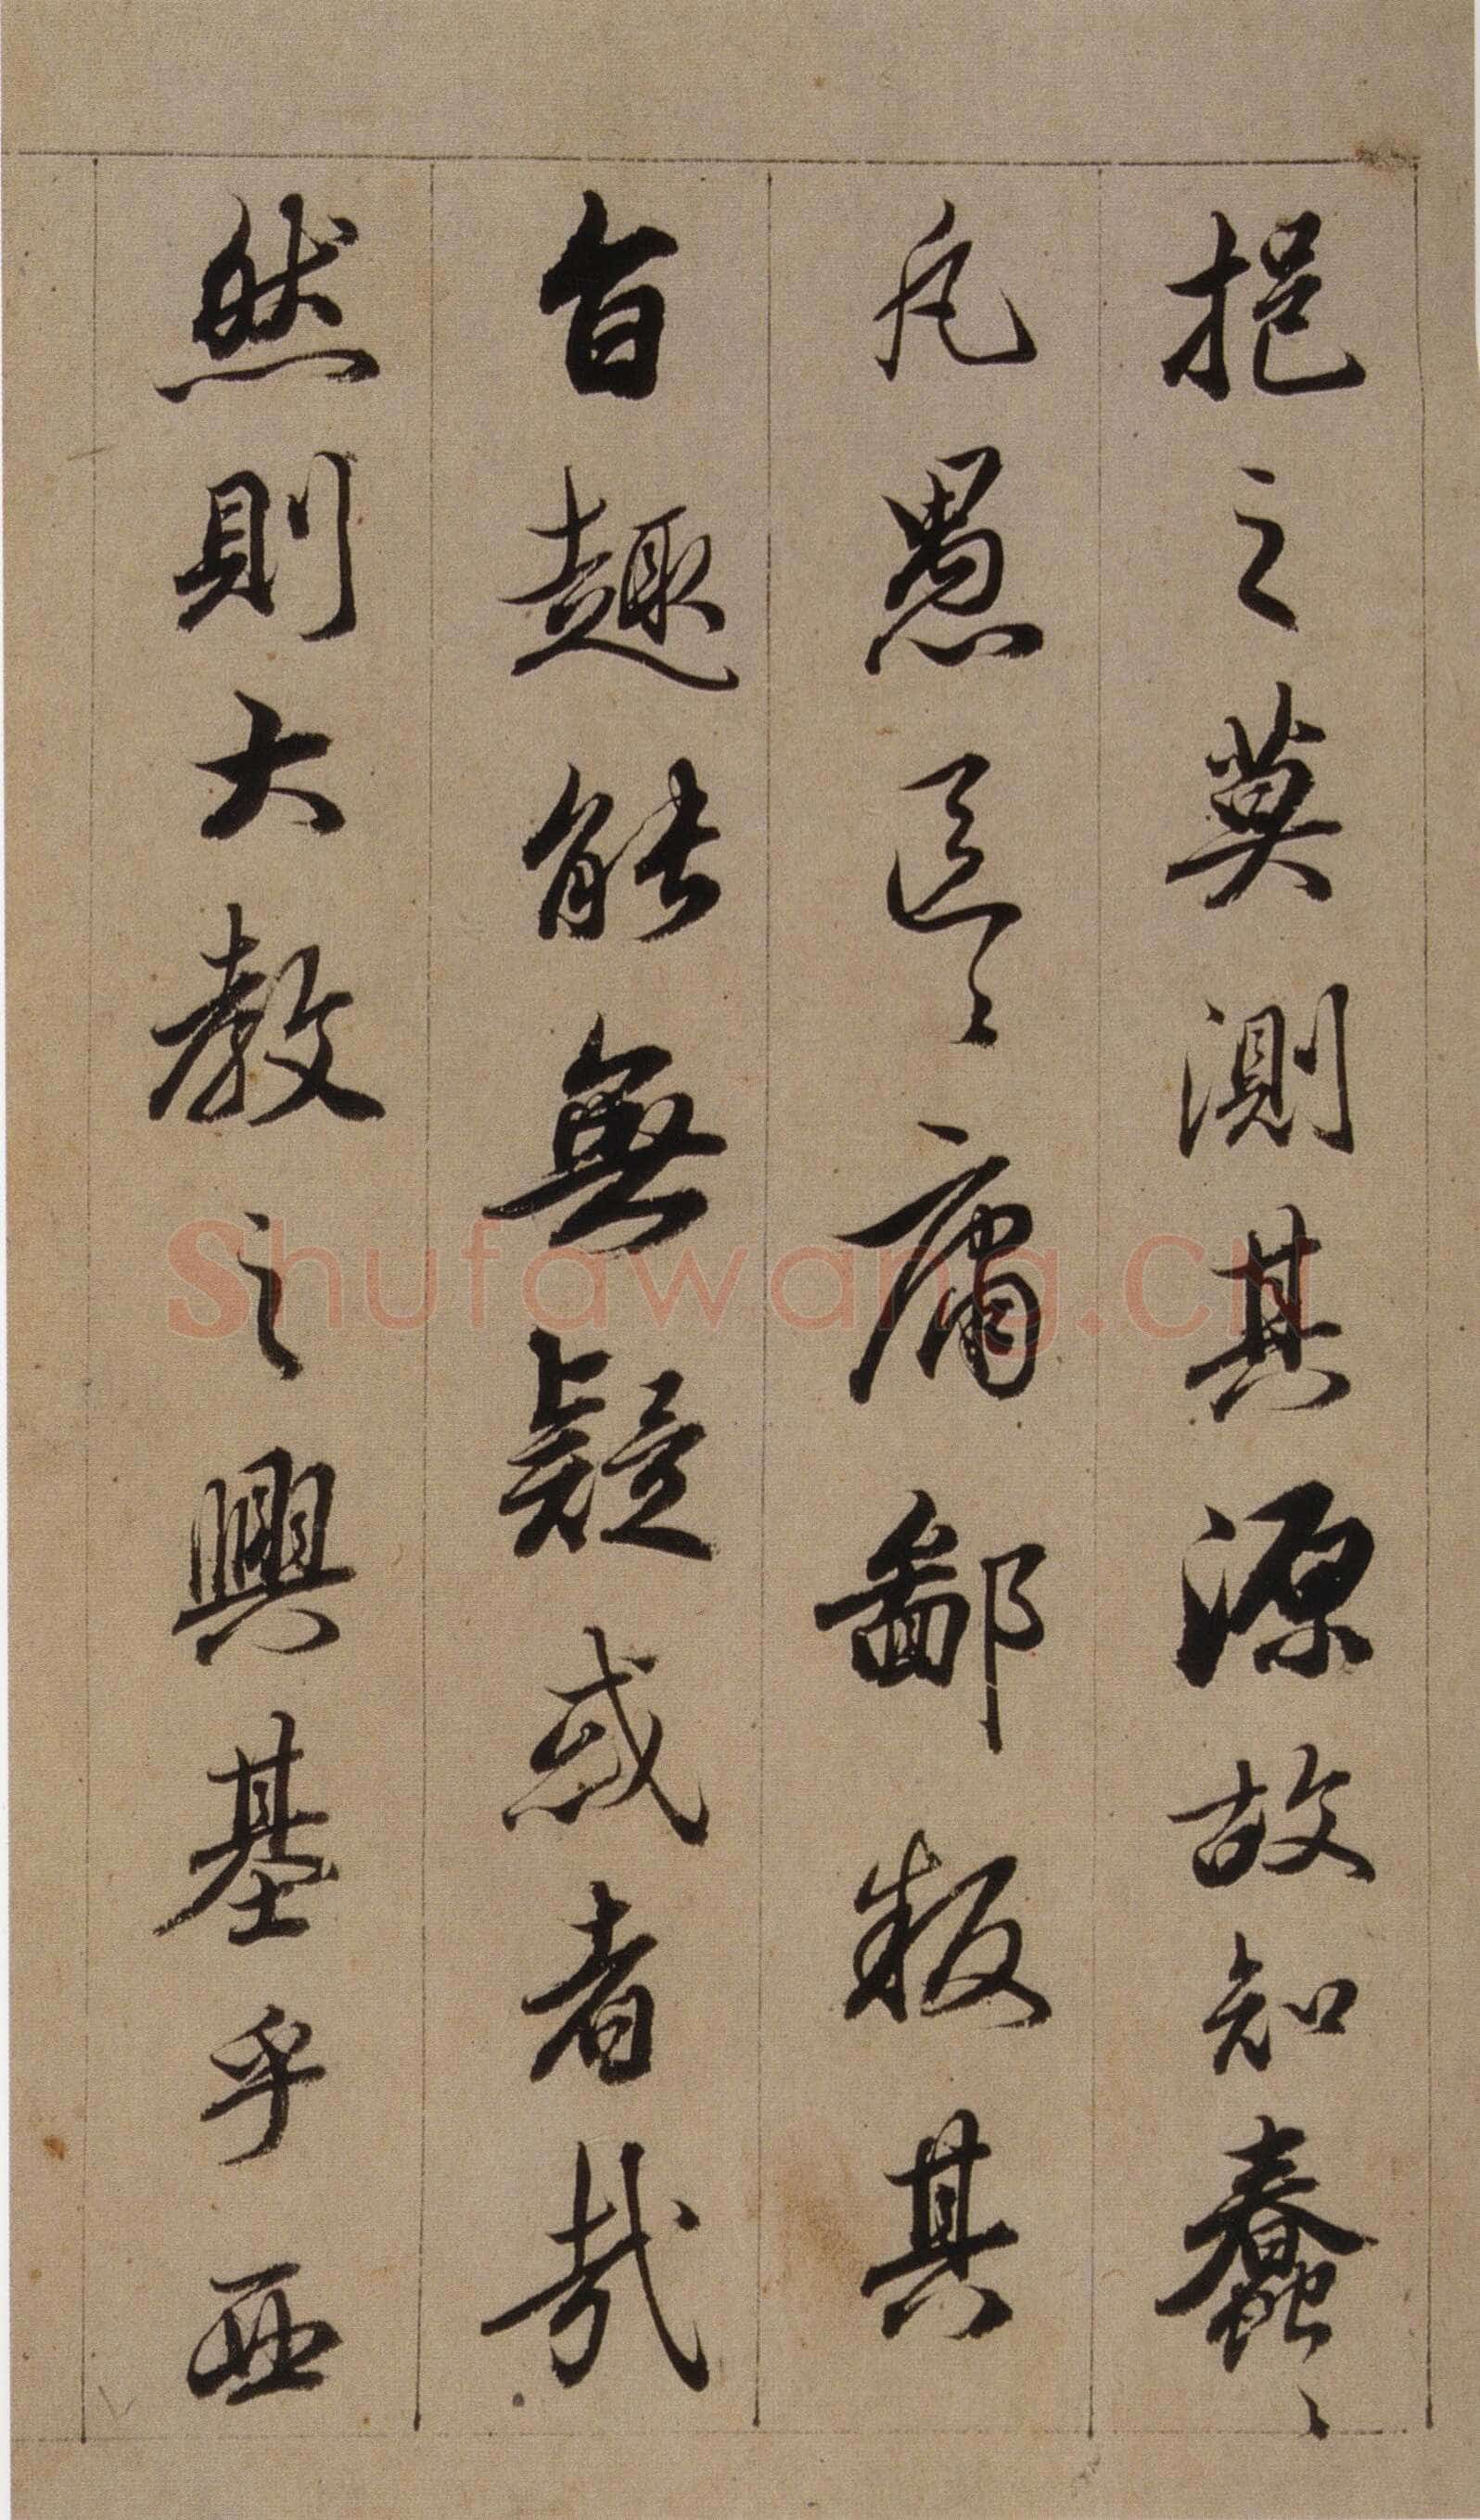 挹之莫測其源故知蠢〻
凡愚區〻庸鄙投其
旨趣能無疑惑者哉
然則大教之興基乎西
Shufawang.cn